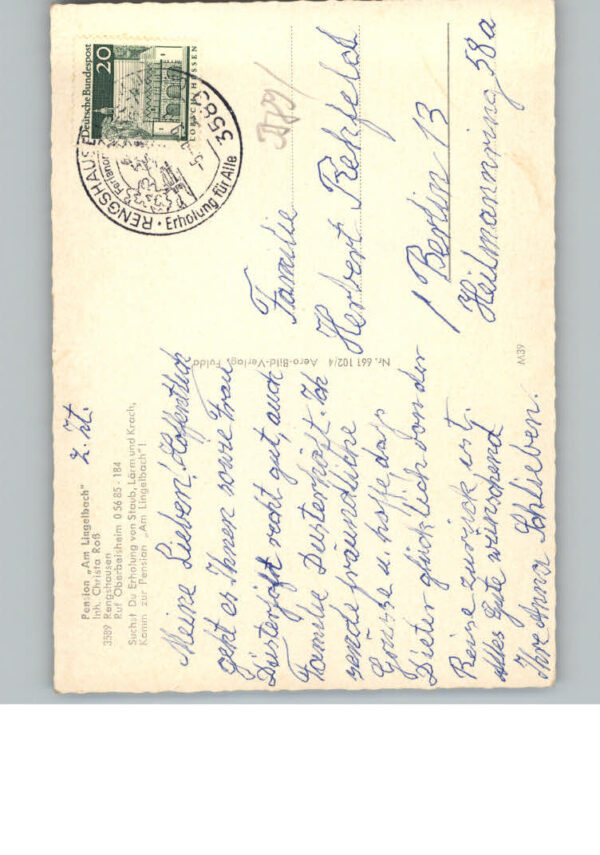 Pension „Am Lingelbach"
Inh. Christa Roß
3589 Rengshausen
Ruf Oberbeisheim 0 56 85 - 184
Suchst Du Erholung von Staub, Lärm und Krach,
Komm zur Pension „Am Lingelbach"!
z. Zt.
Meine Lieben! Hoffentlich
geht es Ihnen sowie Frau
Düsterhöft recht gut, auch
Familie Düsterhöft. Ich
sende freundliche
Grüsse u. hoffe dass
Dieter glücklich von der
Reise zurück ist.
Alles Gute wünschend
Ihre Anna Schlieben.
Nr. 661 102/4 Aero-Bild-Verlag, Fulda
Deutsche Bundespost
20
LORSCH/HESSEN
3589 RENGSHAUSEN
Erholung für Alle
Familie
Herbert Rehfeld
1 Berlin 13
Heilmannring 58a
M39